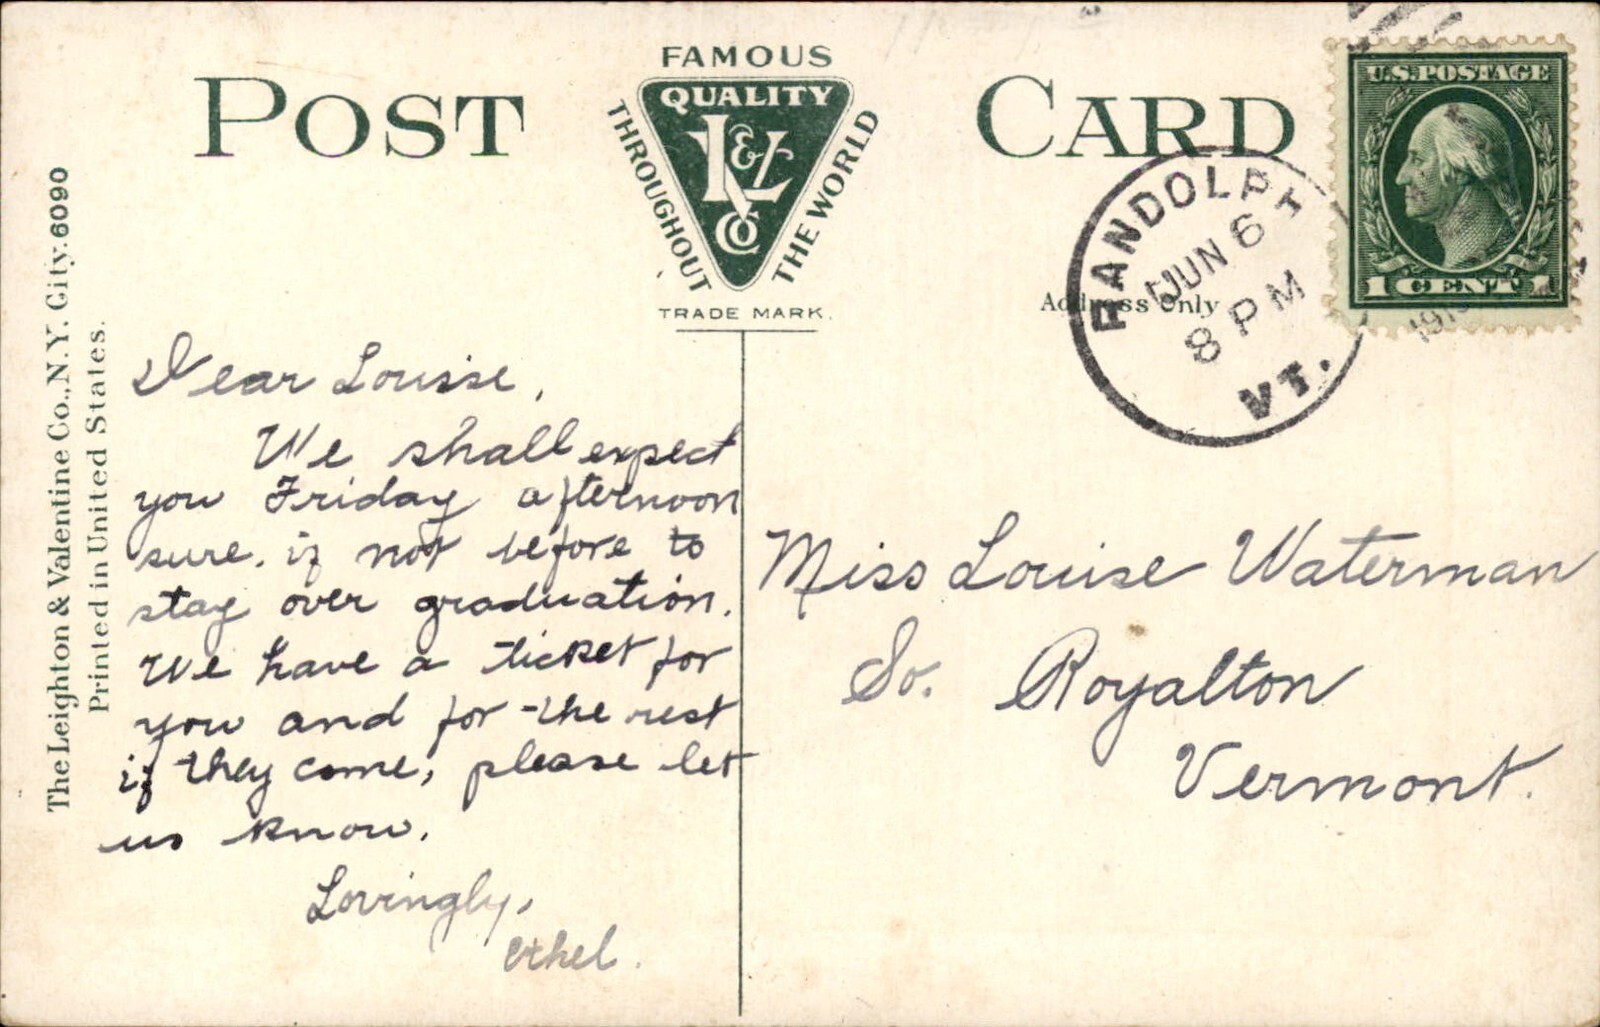 POST CARD
FAMOUS
QUALITY
L & V Co
THROUGHOUT
THE WORLD
TRADE MARK.
The Leighton & Valentine Co., N.Y. City. 6090
Printed in United States.
Address Only
RANDOLPH
JUN 6
8 PM
VT.
U.S. POSTAGE
1 CENT 1
Dear Louise,
We shall expect
you Friday afternoon
sure, if not before to
stay over graduation.
We have a ticket for
you and for the rest
if they come, please let
us know.
Lovingly,
Ethel.
Miss Louise Waterman
So. Royalton
Vermont.